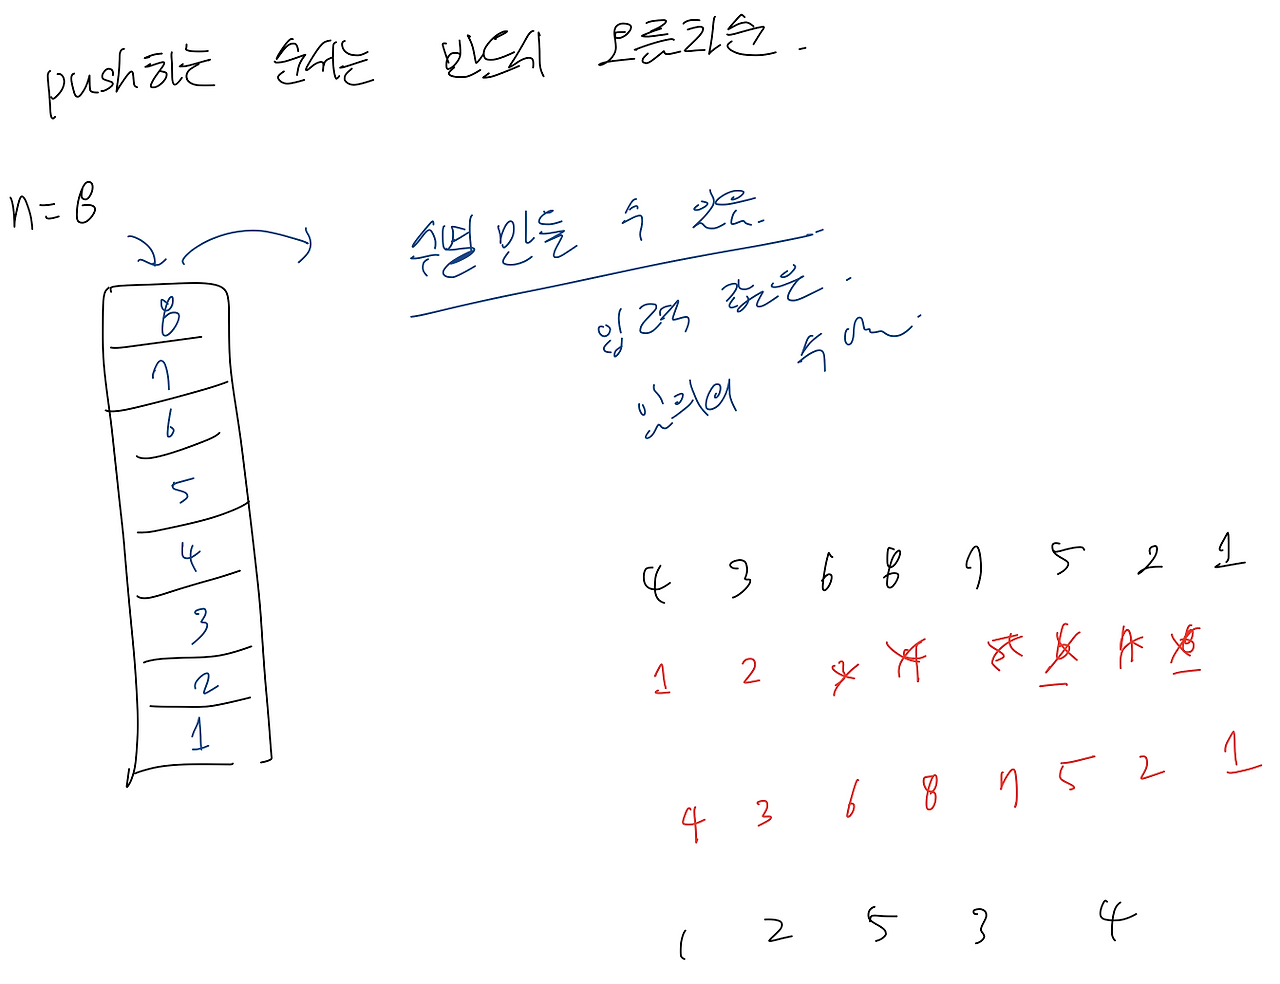 push하는 순서는 반드시 오름차순.
n=8
수열 만들 수 있음.
입력 값은.
임의의 수 eN.
8
7
6
5
4
3
2
1
4 3 6 8 7 5 2 1
1 2 3 4 5 6 7 8
4 3 6 8 7 5 2 1
1 2 5 3 4